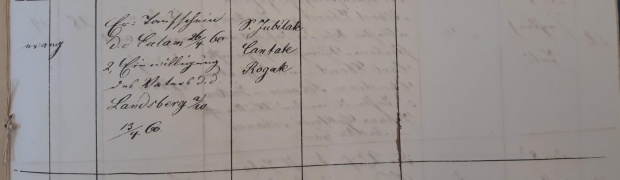 Er: Taufschein
d.d Calau 26/4 60
2, Einwilligung
des Vaters d.d
Landsberg a/
13/4. 60.
S. Jubilate
Cantate
Rogate
evang